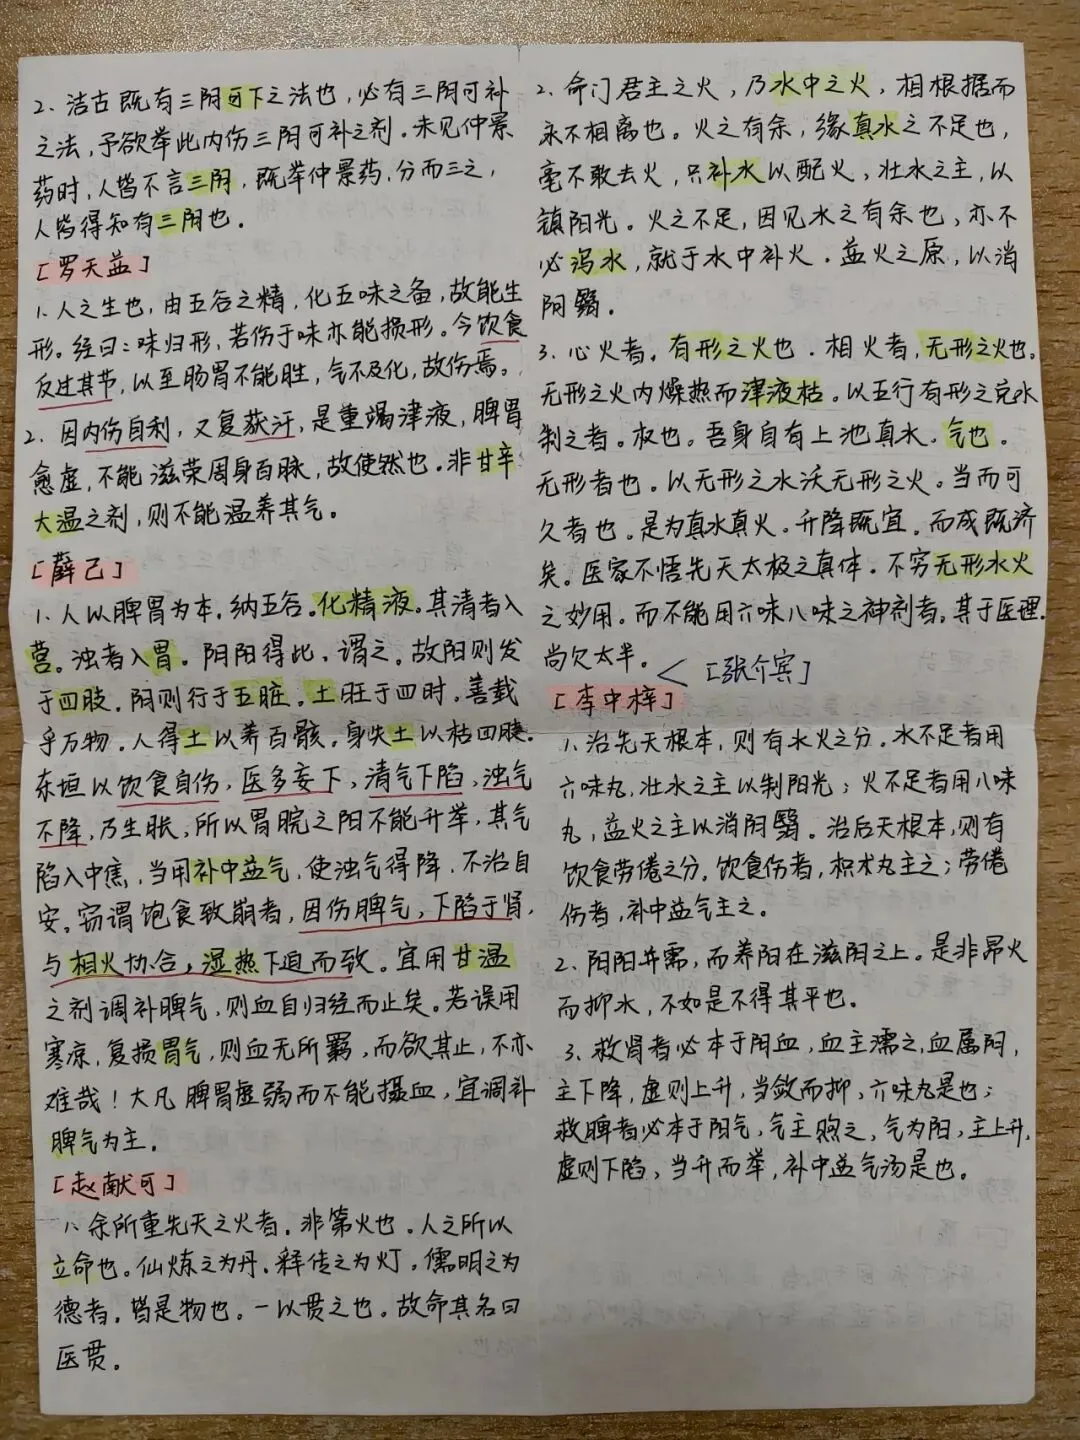 2. 洁古既有三阴可下之法也，必有三阴可补
之法，予欲举此内伤三阴可补之剂。未见仲景
药时，人皆不言三阴，既举仲景药，分而三之，
人皆得知有三阴也。
[罗天益]
1. 人之生也，由五谷之精，化五味之备，故能生
形。经曰：味归形，若伤于味亦能损形。今饮食
反过其节，以至肠胃不能胜，气不及化，故伤焉。
2. 因内伤自利，又复获汗，是重竭津液，脾胃
愈虚，不能滋荣周身百脉，故使然也。非甘辛
大温之剂，则不能温养其气。
[薛己]
1. 人以脾胃为本，纳五谷。化精液。其清者入
营。浊者入胃。阴阳得此，谓之。故阳则发
于四肢。阴则行于五脏。土旺于四时，善载
乎万物。人得土以养百骸，身失土以枯四肢。
东垣以饮食自伤，医多妄下，清气下陷，浊气
不降，乃生胀，所以胃脘之阳不能升举，其气
陷入中焦，当用补中益气，使浊气得降，不治自
安。窃谓饱食致崩者，因伤脾气，下陷于肾，
与相火协合，湿热下迫而致。宜用甘温
之剂调补脾气，则血自归经而止矣。若误用
寒凉，复损胃气，则血无所羁，而欲其止，不亦
难哉！大凡脾胃虚弱而不能摄血，宜调补
脾气为主。
[赵献可]
1. 余所重先天之火者。非第火也。人之所以
立命也。仙炼之为丹。释传之为灯。儒明之为
德者。皆是物也。一以贯之也。故命其名曰
医贯。
2. 命门君主之火，乃水中之火，相根据而
永不相离也。火之有余，缘真水之不足也，
毫不敢去火，只补水以配火，壮水之主，以
镇阳光。火之不足，因见水之有余也，亦不
必泻水，就于水中补火。益火之原，以消
阴翳。
3. 心火者，有形之火也．相火者，无形之火也。
无形之火内燥热而津液枯。以五行有形之兑水
制之者。权也。吾身自有上池真水．气也．
无形者也。以无形之水沃无形之火。当而可
久者也。是为真水真火。升降既宜。而成既济
矣。医家不悟先天太极之真体．不穷无形水火
之妙用。而不能用六味八味之神剂者，其于医理．
尚欠太半。 < [张介宾]
[李中梓]
1. 治先天根本，则有水火之分．水不足者用
六味丸，壮水之主以制阳光；火不足者用八味
丸，益火之主以消阴翳。治后天根本，则有
饮食劳倦之分，饮食伤者，枳术丸主之；劳倦
伤者，补中益气主之。
2. 阴阳并需，而养阳在滋阴之上。是非昂火
而抑水，不如是不得其平也。
3. 救肾者必本于阴血，血主濡之，血属阴，
主下降，虚则上升，当敛而抑，六味丸是也；
救脾者必本于阳气，气主煦之，气为阳，主上升，
虚则下陷，当升而举，补中益气汤是也。